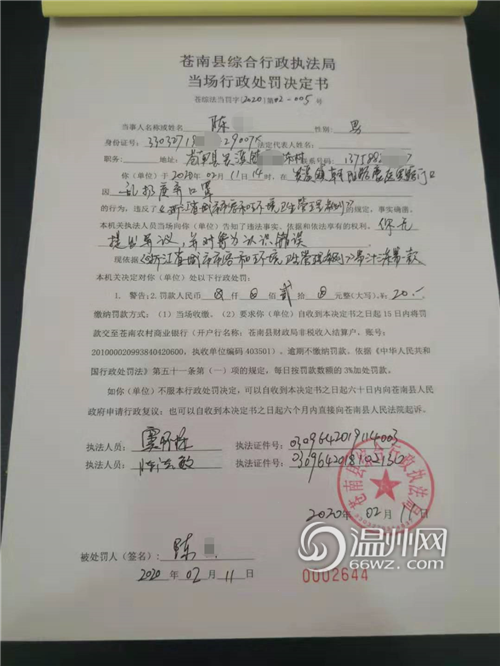 苍南县综合行政执法局
当场行政处罚决定书
苍综法当罚字[2020]第02-005号
当事人名称或姓名 陈 性别: 男
身份证号: 法定代表人姓名:
职务: 地址: 联系号码:
你(单位)于2020年02月11日14时,在
乱扔废弃口罩
的行为,违反了《浙江省城市市容和环境卫生管理条例》的规定,事实确凿。
本机关执法人员当场向你(单位)告知了违法事实、依据和依法享有的权利,你无
提出异议,并对行为认识错误
现依据《浙江省城市市容和环境卫生管理条例》
本机关决定对你(单位)处以下行政处罚:
1. 警告;2.罚款人民币 仟 佰 贰 拾 元整(大写)¥: 20.—
缴纳罚款方式:(1)当场收缴。(2)要求你(单位)自收到本决定书之日起15日内将罚
款交至苍南农村商业银行(开户行名称:苍南县财政局非税收入结算户。账号:
201000020993840420600,执收单位编码 403501)。逾期不缴纳罚款,依据《中华人民共和
国行政处罚法》第五十一条第(一)项的规定,每日按罚款数额的3%加处罚款。
如你(单位)不服本行政处罚决定,可以自收到本决定书之日起六十日内向苍南县人民
政府申请行政复议;也可以自收到本决定书之日起六个月内直接向苍南县人民法院起诉。
执法人员: 执法证件号: 0309642019114003
执法人员: 执法证件号:
苍南县综合行政执法局
2020年02月11日
被处罚人(签名): 陈
2020年02月11日
0002644
温州网
66wz.com